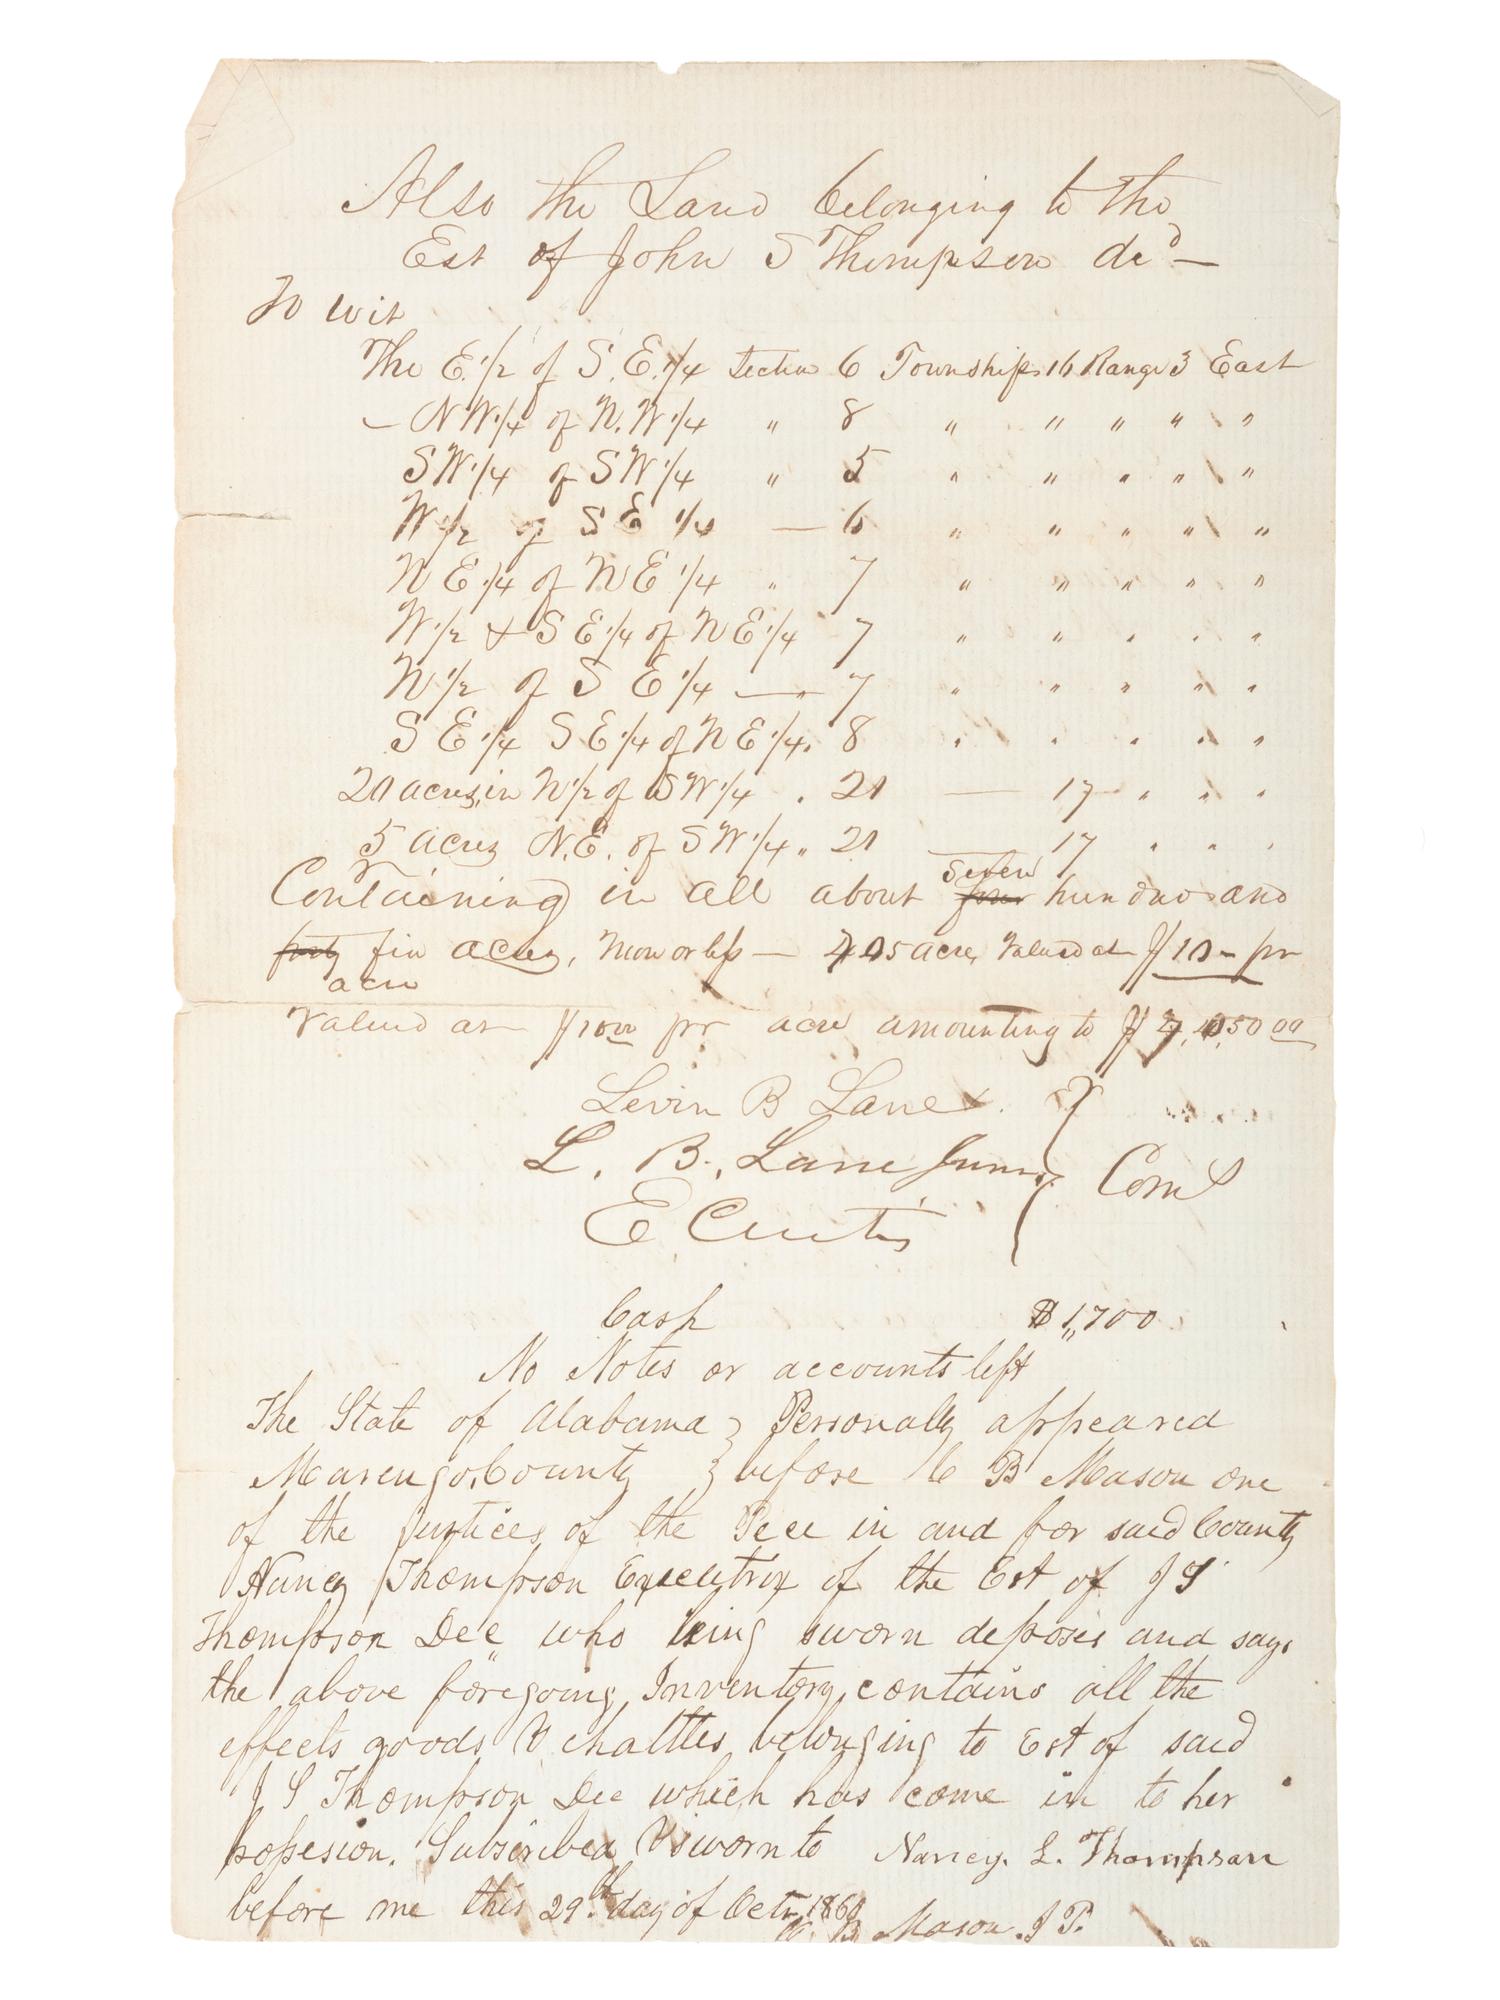 Also the Land belonging to the
Est of John S Thompson decd —
To wit
The E. 1/2 of S. E. 1/4 Section 6 Township 16 Range 3 East
— N W 1/4 of N. W 1/4 " 8 " " " " "
S W 1/4 of S W 1/4 " 5 " " " " "
W 1/2 of S E 1/4 — 6 " " " " "
N E 1/4 of N E 1/4 " 7 " " " " "
W 1/2 & S E 1/4 of N E 1/4 7 " " " " "
N 1/2 of S E 1/4 — " 7 " " " " "
S E 1/4 S E 1/4 of N E 1/4 " 8 " " " " "
20 acres, in N 1/2 of S W 1/4 " 21 — 17 " " "
5 acres N. E. of S W 1/4 " 21 — 17 " " "
Containing in all about four seven hundred and
forty five acres, more or less — 705 acres Valued at $10 - pr
acre
Valued at $10 00 pr acre amounting to $7,050 00
Levin B Lane
L. B. Lane Junr
E Curtis
Coms
Cash $1,700
No Notes or accounts left
The State of Alabama } Personally appeared
Marengo County } before C B Mason one
of the Justices of the Pece in and for said County
Nancy Thompson Executrix of the Est of J S
Thompson Dec who being sworn deposes and says
the above foregoing Inventory contains all the
effects goods & chattles belonging to Est of said
J S Thompson Dec which has come in to her
possesion. Subscribed & sworn to Nancy. L. Thompson
before me this 29th day of Octr 1860
C. B Mason. J P.